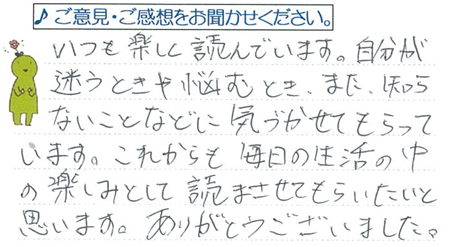 ♪ご意見・ご感想をお聞かせください。
いつも楽しく読んでいます。自分が
迷うときや悩むとき、また、知ら
ないことなどに気づかせてもらって
います。これからも毎日の生活の中
の楽しみとして読まさせてもらいたいと
思います。ありがとうございました。